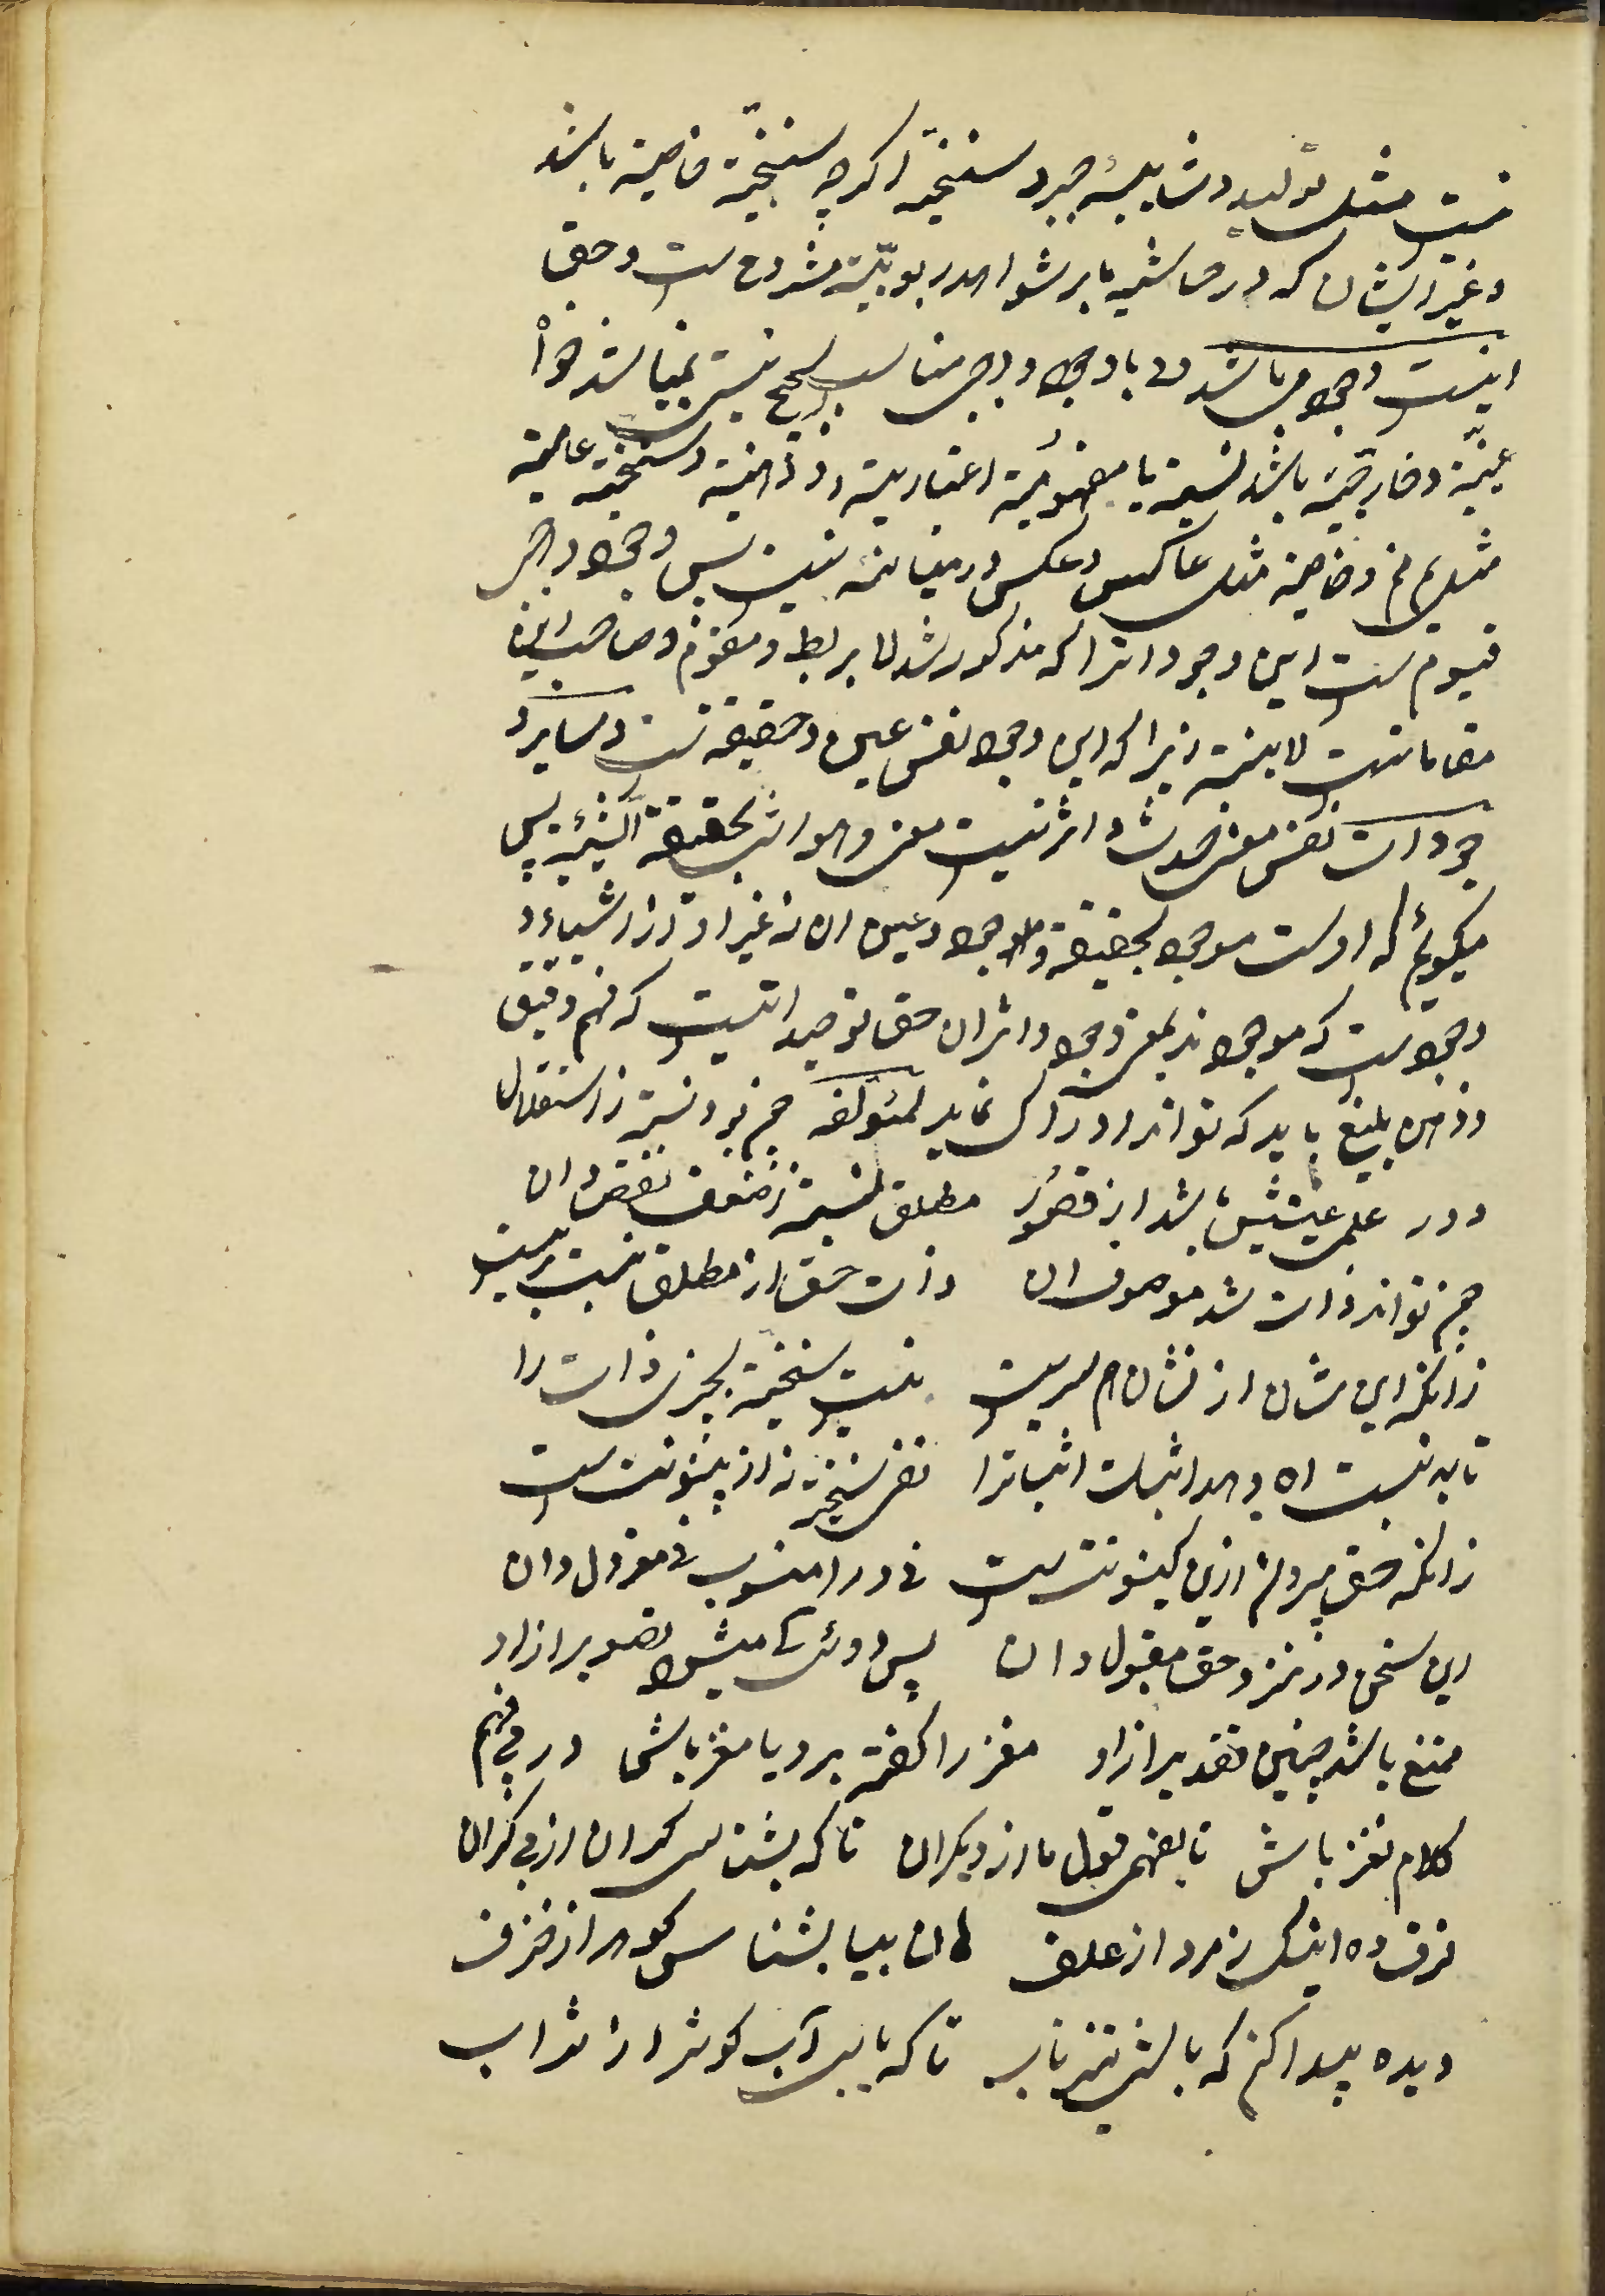 نیست مثل تولید و شایبهٔ جبر و سنخیّه اگرچه سنخیّة خاصیة باشد
و غیر ایشان که در حاشیه ما بر شواهد ربوبیّة مشروح است و حق
اینست وجود می باشد و با وجود واجب مناسب لحیح نیست نمیباشد خواْ
عینیّة و خارجیّة باشد نسبة یا مفهومیّة اعتباریة و ذهنیة و سنخیة عامیة
مثل یم نم و خاصیة مثل عاکس و عکس در میانه نیست پس وجود واجب
قیوم است این وجوداترا که مذکور شد لا بربط و مقوّم و صاحب این
مقاماتست لابینیة زیرا که این وجود نفس عین و حقیقه است و سایر و
جودات نفس معنی حدث و اثر نیست معنی و هو اثبت لحقیقة الشیئیة پس
میگویم که اوست موجود لحقیقة و الوجود و عین ان نه غیر او از اشیاء و
وجود است که موجودند بمعنی وجود و اثر ان حق توحید اینست که فهم دقیق
و ذهن بلیغ باید که تواند ادراک نماید لمؤلفه جم نبود نسبة ز استقلال
دور علمی عینیتش باشد از قصور مطلق نسبة ز ضعف نقص دان
جم نتواند ذات شد موصوف ان ذات حق از مطلق نسبت بریست
زانکه این شان از نشان هم سریست نیست سنخیّة بجز ذات را
تا به نسبت او دهد اثبات اثباترا نفی سنخیّة نه از بینونت است
زانکه حق بیرون ازین کینونت است نی ورا منسوب نی معزول دان
این سخن در نزد حق مقبول دان پس دوئی کی میشود تصویر ازاو
ممتنع باشد چنین تقدیر ازاو مغز را گفته برو یا مغز باش در پی فهم
کلام نغز باش تا بفهمی قول ما از دیگران تا که بشناسی کران از بی کران
فرق ده اینک زمرد از علف هان بیا بشناس گوهر از خزف
دیده پیدا کن که باشی تیز ناب تا که یابی آب کوثر از شراب